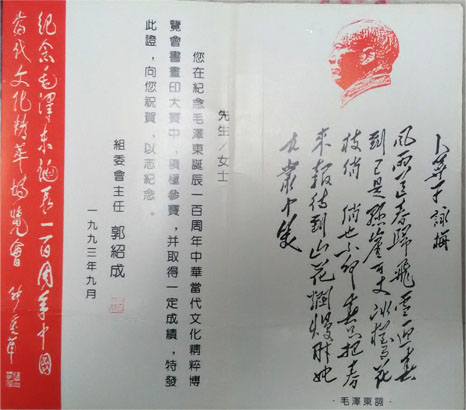 卜算子 詠梅
風雨送春歸飛雪迎春
到已是懸崖百丈冰猶有花
枝俏 俏也不爭春只把春
來報待到山花爛漫時她
在叢中笑
·毛澤東詞·
先生/女士
您在紀念毛澤東誕辰一百周年中華當代文化精粹博
覽會書畫印大賽中，積極參賽，并取得一定成績，特發
此證，向您祝賀，以志紀念。
組委會主任 郭紹成
一九九三年九月
紀念毛澤東誕辰一百周年中國
當代文化精萃博覽會